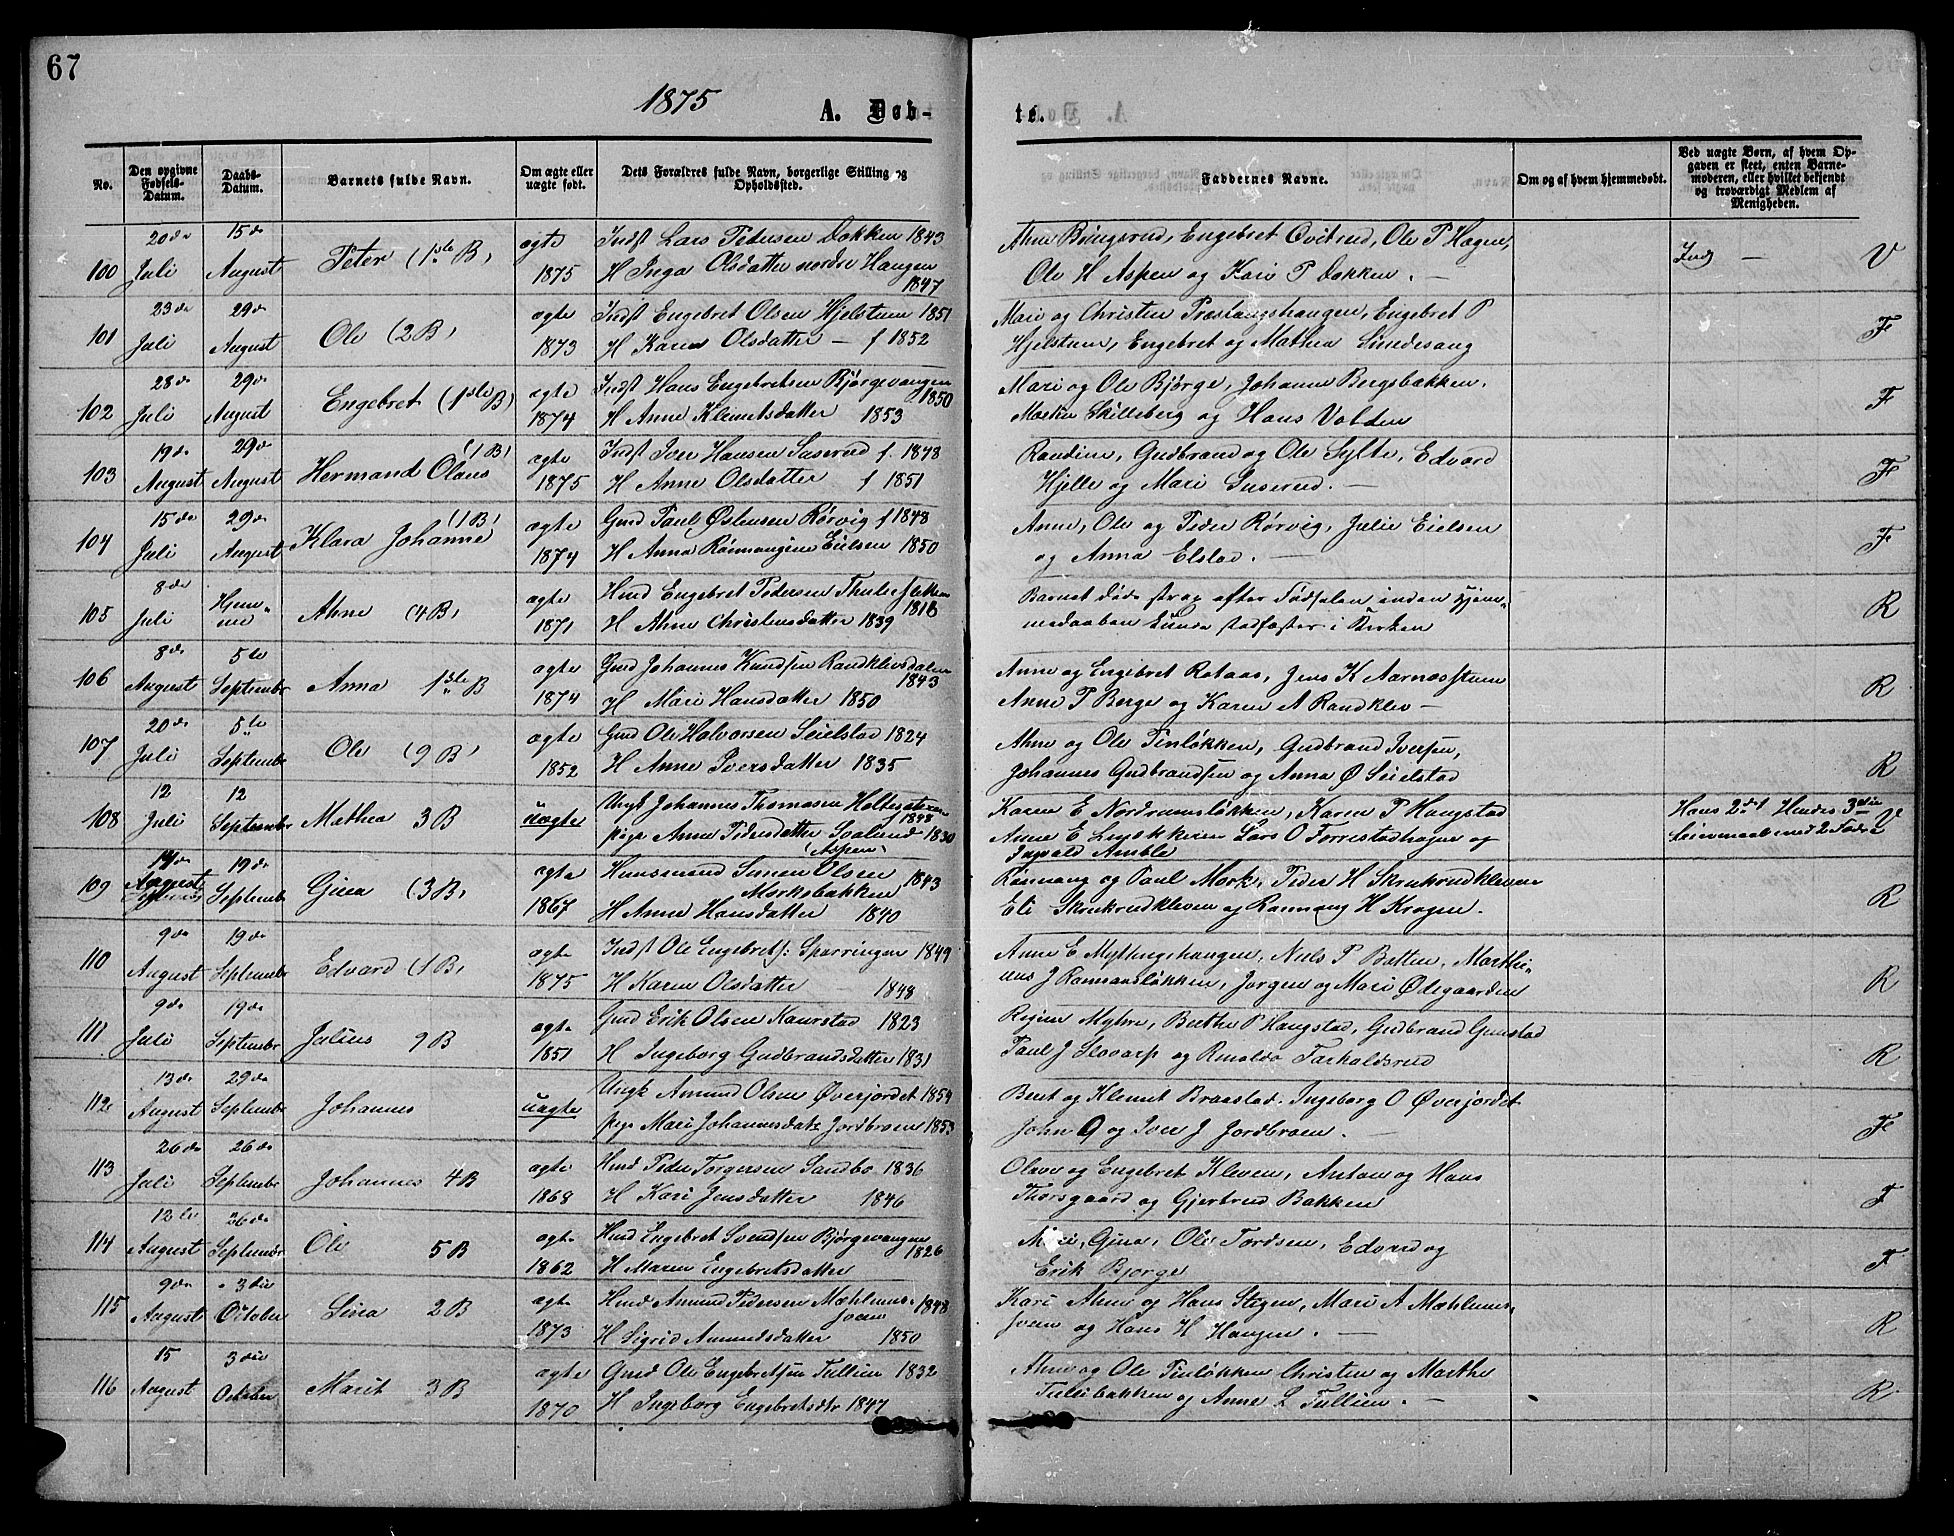 67
1875
A. Døb-
te.
No.
Den opgivne Fødsels-Datum.
Daabs-Datum.
Barnets fulde Navn.
Om ægte eller uægte født.
Dets Forældres fulde Navn, borgerlige Stilling og Opholdssted.
Faddernes Navne.
Om og af hvem hjemmedøbt.
Ved uægte Børn, af hvem Opgaven er skeet, enten Barnemoderen, eller hvilket bekjendt og troværdigt Medlem af Menigheden.
100 20de Juli 15de August Peter (1ste B) ægte 1875
Indst Lars Pedersen Dokken 1843
H Inga Olsdatter nordre Haugen 1847
Ole H Aspen og Kari P Dokken. —
V
101 23de Juli 29de August Ole (2 B) ægte 1873
Indst Engebret Olsen Hjelstuen 1851
H Karen Olsdatter — f 1852
Mari og Christen Præstangshaugen, Engebret P
Hjelstuen, Engebret og Mathea
F
102 28de Juli 29de August Engebret (1ste B) ægte 1874
Indst Hans Engebretsen Bjørgevangen 1850
H Anne Klemetsdatter 1853
Mari og Ole Bjørge, Johanne Bergsbakken,
Skilleberg og Hans Volden
F
103 19de August 29de August Hermand Olaus (1 B) ægte 1875
Indst Iver Hansen Suserud f. 1848
H Anne Olsdatter f 1851
Randine, Gudbrand og Ole Sylte, Edvard
Hjelle og Mari Suserud. —
F
104 15de Juli 29de August Klara Johanne (1 B) ægte 1874
Gmd Paul Østensen Rørvig f 1848
H Anna Rønnaugine Eielsen 1850
Anne, Ole og Peder Rørvig, Julie Eielsen
og Anna Elstad. —
F
105 8de Juli Hjemme Ahne (4 B) ægte 1871
Hmd Engebret Pedersen
H Ahne Christensdatter 1839
Barnet døde strax efter Fødselen inden Hjem-
medaaben kunde stadfæstes i Kirken
R
106 8de August 5te September Anna 1ste B ægte 1874
Gmd Johannes Knudsen Randklevsdalen 1843
H Mari Hansdatter 1850
Anne og Engebret Rotaas, Jens K Aarnæsstuen
Anne P Berge og Karen A Randklev —
R
107 20de Juli 5te September Ole (9 B) ægte 1852
Gmd Ole Halvorsen Seielstad 1824
H Anne Iversdatter 1835
Ahne og Ole Tinløkken, Gudbrand Iversen,
Johannes Gudbrandsen og Anna Ø Seielstad
R
108 12 Juli 12 September Mathea 3 B uægte
Ungk Johannes Thomasen
pige Anne Pedersdatter 1830
(Aspen)
Karen E Nordrumsløkken, Karen P Haugstad
Anne E Lars O Forrestadhagen og
Ingvald Amble
Hans 2det Hendes 3die
Leiermaal med 2
V
109 14de August 19de September Gina (3 B) ægte 1867
Huusmand Simen Olsen Morksbakken 1843
H Anne Hansdatter 1840
Rønnaug og Paul Mork, Peder H Skrukrudkleven
Eli Skrukrudkleven og Rønnaug H Krogen.
R
110 9de August 19de September Edvard (1 B) ægte 1875
Indst Ole Engebrets: Sparringen 1849
H Karen Olsdatter — 1848
Anne E Myttingshaugen, Niels P Batten, Marthi-
nus J Rønnausløkken, Jørgen og Mari Ødegaarden
R
111 9de Juli 19de September Julius 9 B ægte 1851
Gmd Erik Olsen Kaurstad 1823
H Ingeborg Gudbrandsdatter 1831
Regine Myhre, Berthe P Haugstad, Gudbrand Gunstad
Paul J og Rinoldo
R
112 13de August 29de September Johannes uægte
Ungk Amund Olsen Øverjordet 1854
pige Mari Johannesdatr Jordbroen 1853
Berit og Klemet Braastad. Ingeborg O Øverjordet
John O og Iver J Jordbroen. —
F
113 26de Juli 26de September Johannes 4 B ægte 1868
Hmd Peder Torgersen Sandbo 1836
H Kari Jensdatter 1846
Olave og Engebret Kleven, Anton og Hans
Thorsgaard og Gjertrud Bakken
F
114 12te August 26de September Ole 5 B ægte 1862
Hmd Engebret Svendsen Bjørgevangen 1826
H Maren Engebretsdatter
Mari, Gina, Ole Tordsen, Edvard og
Erik Bjørge
F
115 9de August 3die October Sina 2 B ægte 1873
Hmd Amund Pedersen Mæhlumssveen 1848
H Sigrid Amundsdatter 1850
Kari Ahne og Hans Stigen, Mari A Mæhlums-
sveen og Hans H Haugen. —
R
116 15 August 3die October Marit 3 B ægte 1870
Gmd Ole Engebretsen Tullien 1832
H Ingeborg Engebretsdtr 1847
Ahne og Ole Tinløkken Christen og Marthe
Tulibakken og Anne L Tullien. —
R